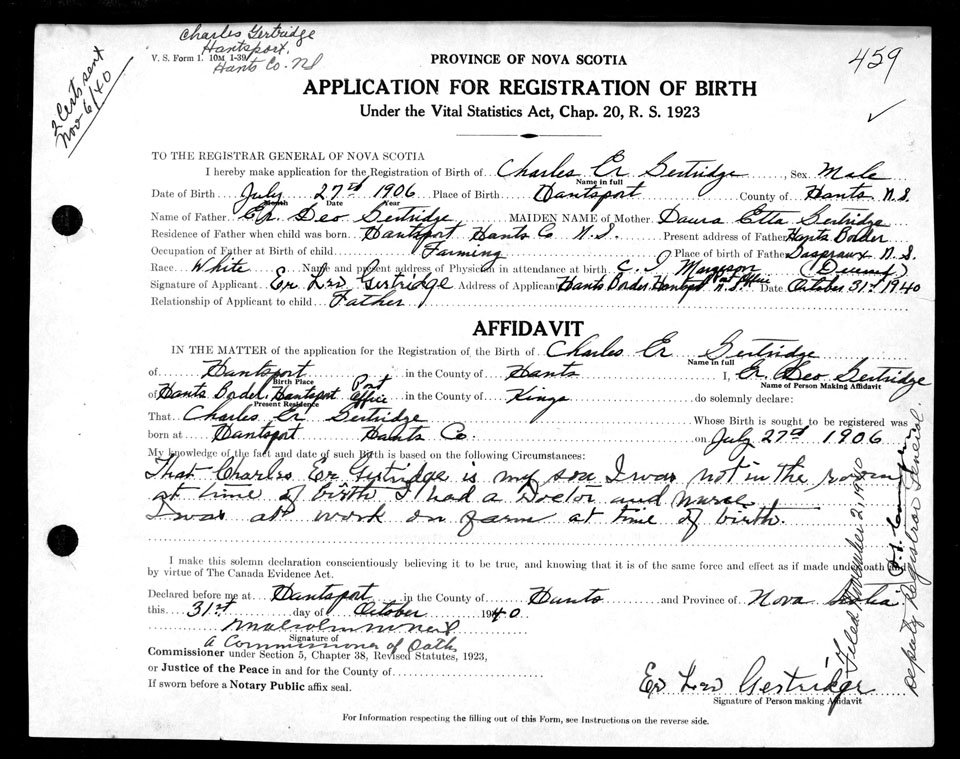 Charles Gertridge
Hantsport,
Hants Co. NS
V. S. Form 1. 10M 1-39
2 Certs sent
Nov 6/40
459
PROVINCE OF NOVA SCOTIA
APPLICATION FOR REGISTRATION OF BIRTH
Under the Vital Statistics Act, Chap. 20, R. S. 1923
TO THE REGISTRAR GENERAL OF NOVA SCOTIA
I hereby make application for the Registration of Birth of Charles Er Gertridge, Sex Male
Name in full
Date of Birth July 27th 1906 Place of Birth Hantsport County of Hants N.S.
Month Date Year
Name of Father Er Leo Gertridge, MAIDEN NAME of Mother Etta Gertridge
Residence of Father when child was born. Hantsport Hants Co N.S. Present address of Father Hants Border
Occupation of Father at Birth of child Farming Place of birth of Father N.S.
Race. White Name and present address of Physician in attendance at birth. C. I Margeson
Signature of Applicant Er Leo Gertridge Address of Applicant Hants Border Hantsport Post Office N.S. Date October 31st 1940
Relationship of Applicant to child Father
AFFIDAVIT
IN THE MATTER of the application for the Registration of the Birth of Charles Er Gertridge
Name in full
of Hantsport in the County of Hants I, Er Leo Gertridge
Birth Place Name of Person Making Affidavit
of Hants Border Hantsport Post Office in the County of Kings do solemnly declare:
Present Residence
That Charles Er Gertridge Whose Birth is sought to be registered was
born at Hantsport Hants Co. on July 27th 1906
My knowledge of the fact and date of such Birth is based on the following Circumstances:
That Charles Er Gertridge is my son I was not in the room
at time of birth I had a Doctor and Nurse
I was at work on farm at time of birth.
I make this solemn declaration conscientiously believing it to be true, and knowing that it is of the same force and effect as if made under oath and
by virtue of The Canada Evidence Act.
Declared before me at Hantsport in the County of Hants and Province of Nova Scotia
this 31st day of October 1940
Malcolm McNeil
Signature of
a Commissioner of Oaths
Commissioner under Section 5, Chapter 38, Revised Statutes, 1923,
or Justice of the Peace in and for the County of
If sworn before a Notary Public affix seal.
Er Leo Gertridge
Signature of Person making Affidavit
Filed November 2, 1940
Deputy Registrar General.
For Information respecting the filling out of this Form, see Instructions on the reverse side.